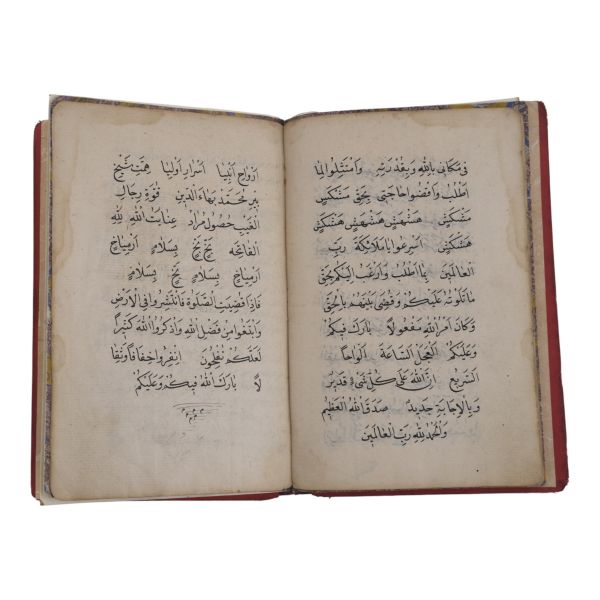 في مكاني بالله وبقدرته وامتثلوا لما
اطلب واقضوا حاجتي بحق
هشهش هشهش
اسرعوا يا ملائكة رب
العالمين بما اطلب وارغب اليكم بحق
ما تلوته عليكم وقضى بينهم بالحق
وكان امر الله مفعولا بارك فيكم
وعليكم العجل الساعة الواحا
السريع ان الله على كل شيء قدير
وبالاجابة جدير صدق الله العظيم
والحمد لله رب العالمين
ارواح انبيا اسرار اوليا همت شيخ
پير محمد بهاء الدين قوة رجال
الغيب حصول مراد عنايت الله لله
الفاتحه بسلام ارمياخ
ارمياخ بسلام بسلام
فاذا قضيت الصلوة فانتشروا في الارض
وابتغوا من فضل الله واذكروا الله كثيرا
لعلكم تفلحون انفروا خفافا وثقا
لا بارك الله فيكم وعليكم